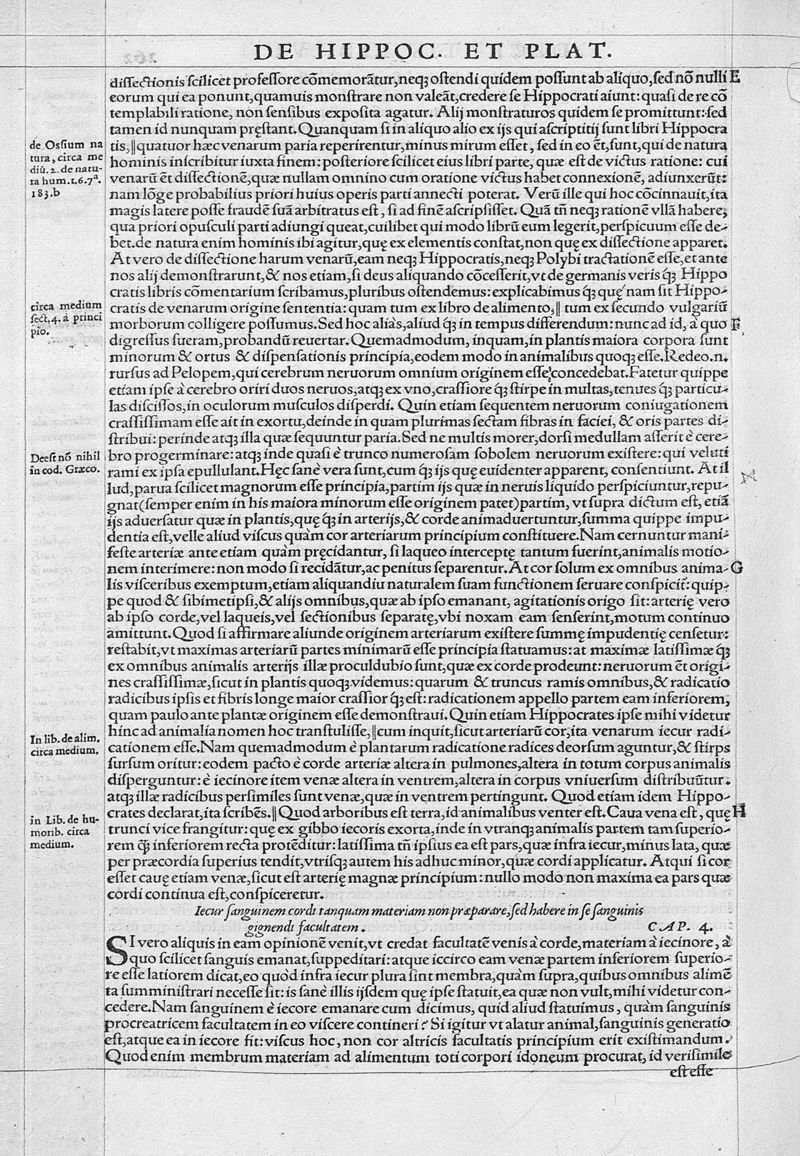 DE HIPPOC. ET PLAT.
dissectionis scilicet professore cōmemorātur,neqꝫ ostendi quidem possunt ab aliquo,sed nō nulli E
eorum qui ea ponunt,quamuis monstrare non valeāt,credere se Hippocrati aiunt:quasi de re cō
templabili ratione, non sensibus exposita agatur. Alij monstraturos quidem se promittunt:sed
tamen id nunquam pręstant.Quanquam si in aliquo alio ex ijs qui ascriptitij sunt libri Hippocra
tis,‖quatuor hæc venarum paria reperirentur,minus mirum esset, sed in eo ēt,sunt,qui de natura
hominis inscribitur iuxta finem:posteriore scilicet eius libri parte, quæ est de victus ratione: cui
venarū ēt dissectionē,quæ nullam omnino cum oratione victus habet connexionē, adiunxerūt:
nam lōge probabilius priori huius operis parti annecti poterat. Verū ille qui hoc cōcinnauit,ita
magis latere posse fraudē suā arbitratus est , si ad finē ascripsisset. Quā tñ neqꝫ rationē vllā habere,
qua priori opusculi parti adiungi queat,cuilibet qui modo librū eum legerit,perspicuum esse de-
bet.de natura enim hominis ibi agitur,quę ex elementis constat,non quę ex dissectione apparet.
At vero de dissectione harum venarū,eam neqꝫ Hippocratis,neqꝫ Polybi tractationē esse,et ante
nos alij demonstrarunt,& nos etiam,si deus aliquando cōcesserit,vt de germanis veris qꝫ Hippo
cratis libris cōmentarium scribamus,pluribus ostendemus:explicabimus qꝫ quę nam sit Hippo-
cratis de venarum origine sententia: quam tum ex libro de alimento,‖ tum ex secundo vulgariū
morborum colligere possumus.Sed hoc aliàs,aliud qꝫ in tempus differendum: nunc ad id, à quo F
digressus fueram,probandū reuertar.Quemadmodum, inquam,in plantis maiora corpora sunt
minorum & ortus & dispensationis principia,eodem modo in animalibus quoqꝫ esse.Redeo.n.
rursus ad Pelopem,qui cerebrum neruorum omnium originem esse concedebat.Fatetur quippe
etiam ipse à cerebro oriri duos neruos,atqꝫ ex vno,crassiore qꝫ stirpe in multas,tenues qꝫ particu-
las discissos,in oculorum musculos disperdi. Quin etiam sequentem neruorum coniugationem
crassissimam esse ait in exortu,deinde in quam plurimas sectam fibras in faciei, & oris partes di-
stribui: perinde atqꝫ illa quæ sequuntur paria.Sed ne multis morer,dorsi medullam asserit è cere-
bro progerminare: atqꝫ inde quasi è trunco numerosam sobolem neruorum existere: qui veluti
rami ex ipsa epullulant.Hęc sanè vera sunt,cum qꝫ ijs quę euidenter apparent, consentiunt. At il
lud,parua scilicet magnorum esse principia,partim ijs quæ in neruis liquido perspiciuntur,repu-
gnat(semper enim in his maiora minorum esse originem patet)partim, vt supra dictum est, etiā
ijs aduersatur quæ in plantis,quę qꝫ in arterijs,& corde animaduertuntur,summa quippe impu-
dentia est,velle aliud viscus quàm cor arteriarum principium constituere.Nam cernuntur mani
feste arteriæ ante etiam quàm pręcidantur, si laqueo interceptę tantum fuerint,animalis motio-
nem interimere: non modo si recidātur, ac penitus separentur. At cor solum ex omnibus anima- G
lis visceribus exemptum,etiam aliquandiu naturalem suam functionem seruare conspicit: quip-
pe quod & sibimetipsi,& alijs omnibus,quæ ab ipso emanant, agitationis origo sit: arterię vero
ab ipso corde,vel laqueis,vel sectionibus separatę,vbi noxam eam senserint,motum continuo
amittunt. Quod si affirmare aliunde originem arteriarum existere summę impudentię censetur:
restabit,vt maximas arteriarū partes minimarū esse principia statuamus: at maximæ latissimæ qꝫ
ex omnibus animalis arterijs illæ proculdubio sunt,quæ ex corde prodeunt: neruorum ēt origi-
nes crassissimæ,sicut in plantis quoqꝫ videmus: quarum & truncus ramis omnibus,& radicatio
radicibus ipsis et fibris longe maior crassior qꝫ est: radicationem appello partem eam inferiorem,
quam paulo ante plantæ originem esse demonstraui. Quin etiam Hippocrates ipse mihi videtur
hinc ad animalia nomen hoc transtulisse,‖cum inquit,sicut arteriarū cor,ita venarum iecur radi-
cationem esse.Nam quemadmodum è plantarum radicatione radices deorsum aguntur,& stirps
sursum oritur: eodem pacto è corde arteriæ altera in pulmones,altera in totum corpus animalis
disperguntur: è iecinore item venæ altera in ventrem,altera in corpus vniuersum distribuūtur.
atqꝫ illæ radicibus persimiles sunt venæ,quæ in ventrem pertingunt. Quod etiam idem Hippo-
crates declarat,ita scribēs.‖Quod arboribus est terra,id animalibus venter est.Caua vena est, quę H
trunci vice frangitur: quę ex gibbo iecoris exorta,inde in vtranqꝫ animalis partem tam superio-
rem qꝫ inferiorem recta protēditur: latissima tñ ipsius ea est pars,quæ infra iecur,minus lata, quæ
per præcordia superius tendit,vtrisqꝫ autem his adhuc minor,quæ cordi applicatur. Atqui si cor
esset cauę etiam venæ,sicut est arterię magnæ principium: nullo modo non maxima ea pars quæ
cordi continua est,conspiceretur.
Iecur sanguinem cordi tanquam materiam non præparare,sed habere in se sanguinis
gignendi facultatem. CAP. 4.
SI vero aliquis in eam opinionē venit,vt credat facultatē venis à corde,materiam à iecinore, à
quo scilicet sanguis emanat,suppeditari: atque iccirco eam venæ partem inferiorem superio-
re esse latiorem dicat,eo quòd infra iecur plura sint membra,quàm supra,quibus omnibus alimē
ta sumministrari necesse sit: is sanè illis ijsdem quę ipse statuit,ea quæ non vult,mihi videtur con-
cedere.Nam sanguinem è iecore emanare cum dicimus, quid aliud statuimus , quàm sanguinis
procreatricem facultatem in eo viscere contineri? Si igitur vt alatur animal,sanguinis generatio
est,atque ea in iecore fit: viscus hoc, non cor altricis facultatis principium erit existimandum.
Quod enim membrum materiam ad alimentum toti corpori idoneum procurat, id verisimile
est esse
de Ossium na
tura, circa me
diū. 2. de natu-
ra hum.t.6.7ª.
183.b
circa medium
sect.4. à princi
pio.
Deest nō nihil
in cod. Græco.
In lib. de alim.
circa medium.
in Lib. de hu-
morib. circa
medium.